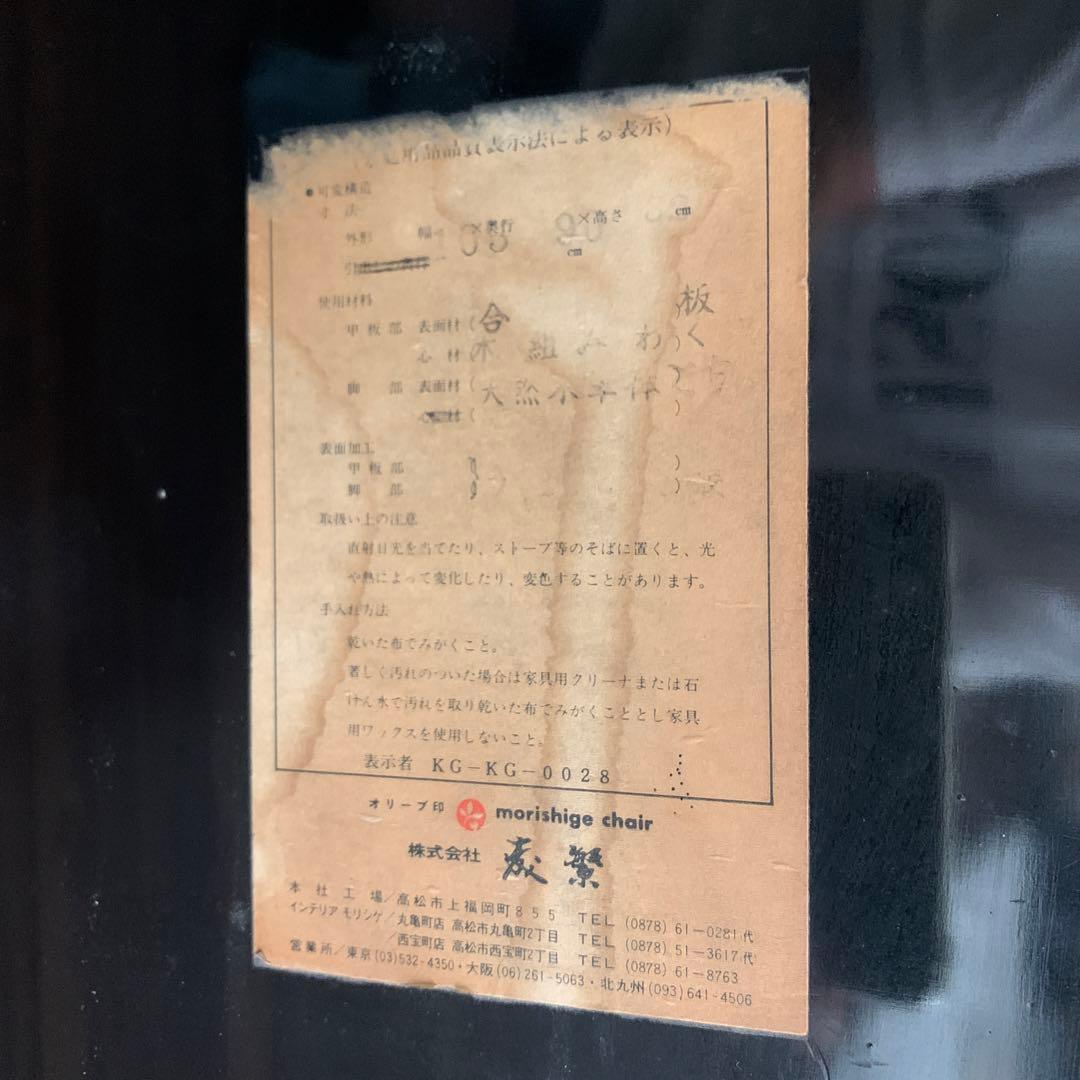 用品品質表示法による表示)
●可変構造
寸法
外形 幅 ×奥行 90 ×高さ cm
cm
使用材料
甲板部 表面材(合 板)
心材(木組みわく)
脚部 表面材(天然木 )
心材( )
表面加工
甲板部
脚部
取扱い上の注意
直射日光を当てたり、ストーブ等のそばに置くと、光
や熱によって変化したり、変色することがあります。
手入れ方法
乾いた布でみがくこと。
著しく汚れのついた場合は家具用クリーナまたは石
けん水で汚れを取り乾いた布でみがくこととし家具
用ワックスを使用しないこと。
表示者 KG-KG-0028
オリーブ印 morishige chair
株式会社 森繁
本社工場/高松市上福岡町855 TEL (0878) 61-0281代
インテリア モリシゲ/丸亀町店 高松市丸亀町2丁目 TEL (0878) 51-3617代
/西宝町店 高松市西宝町2丁目 TEL (0878) 61-8763
営業所/東京(03)532-4350・大阪(06)261-5063・北九州(093)641-4506